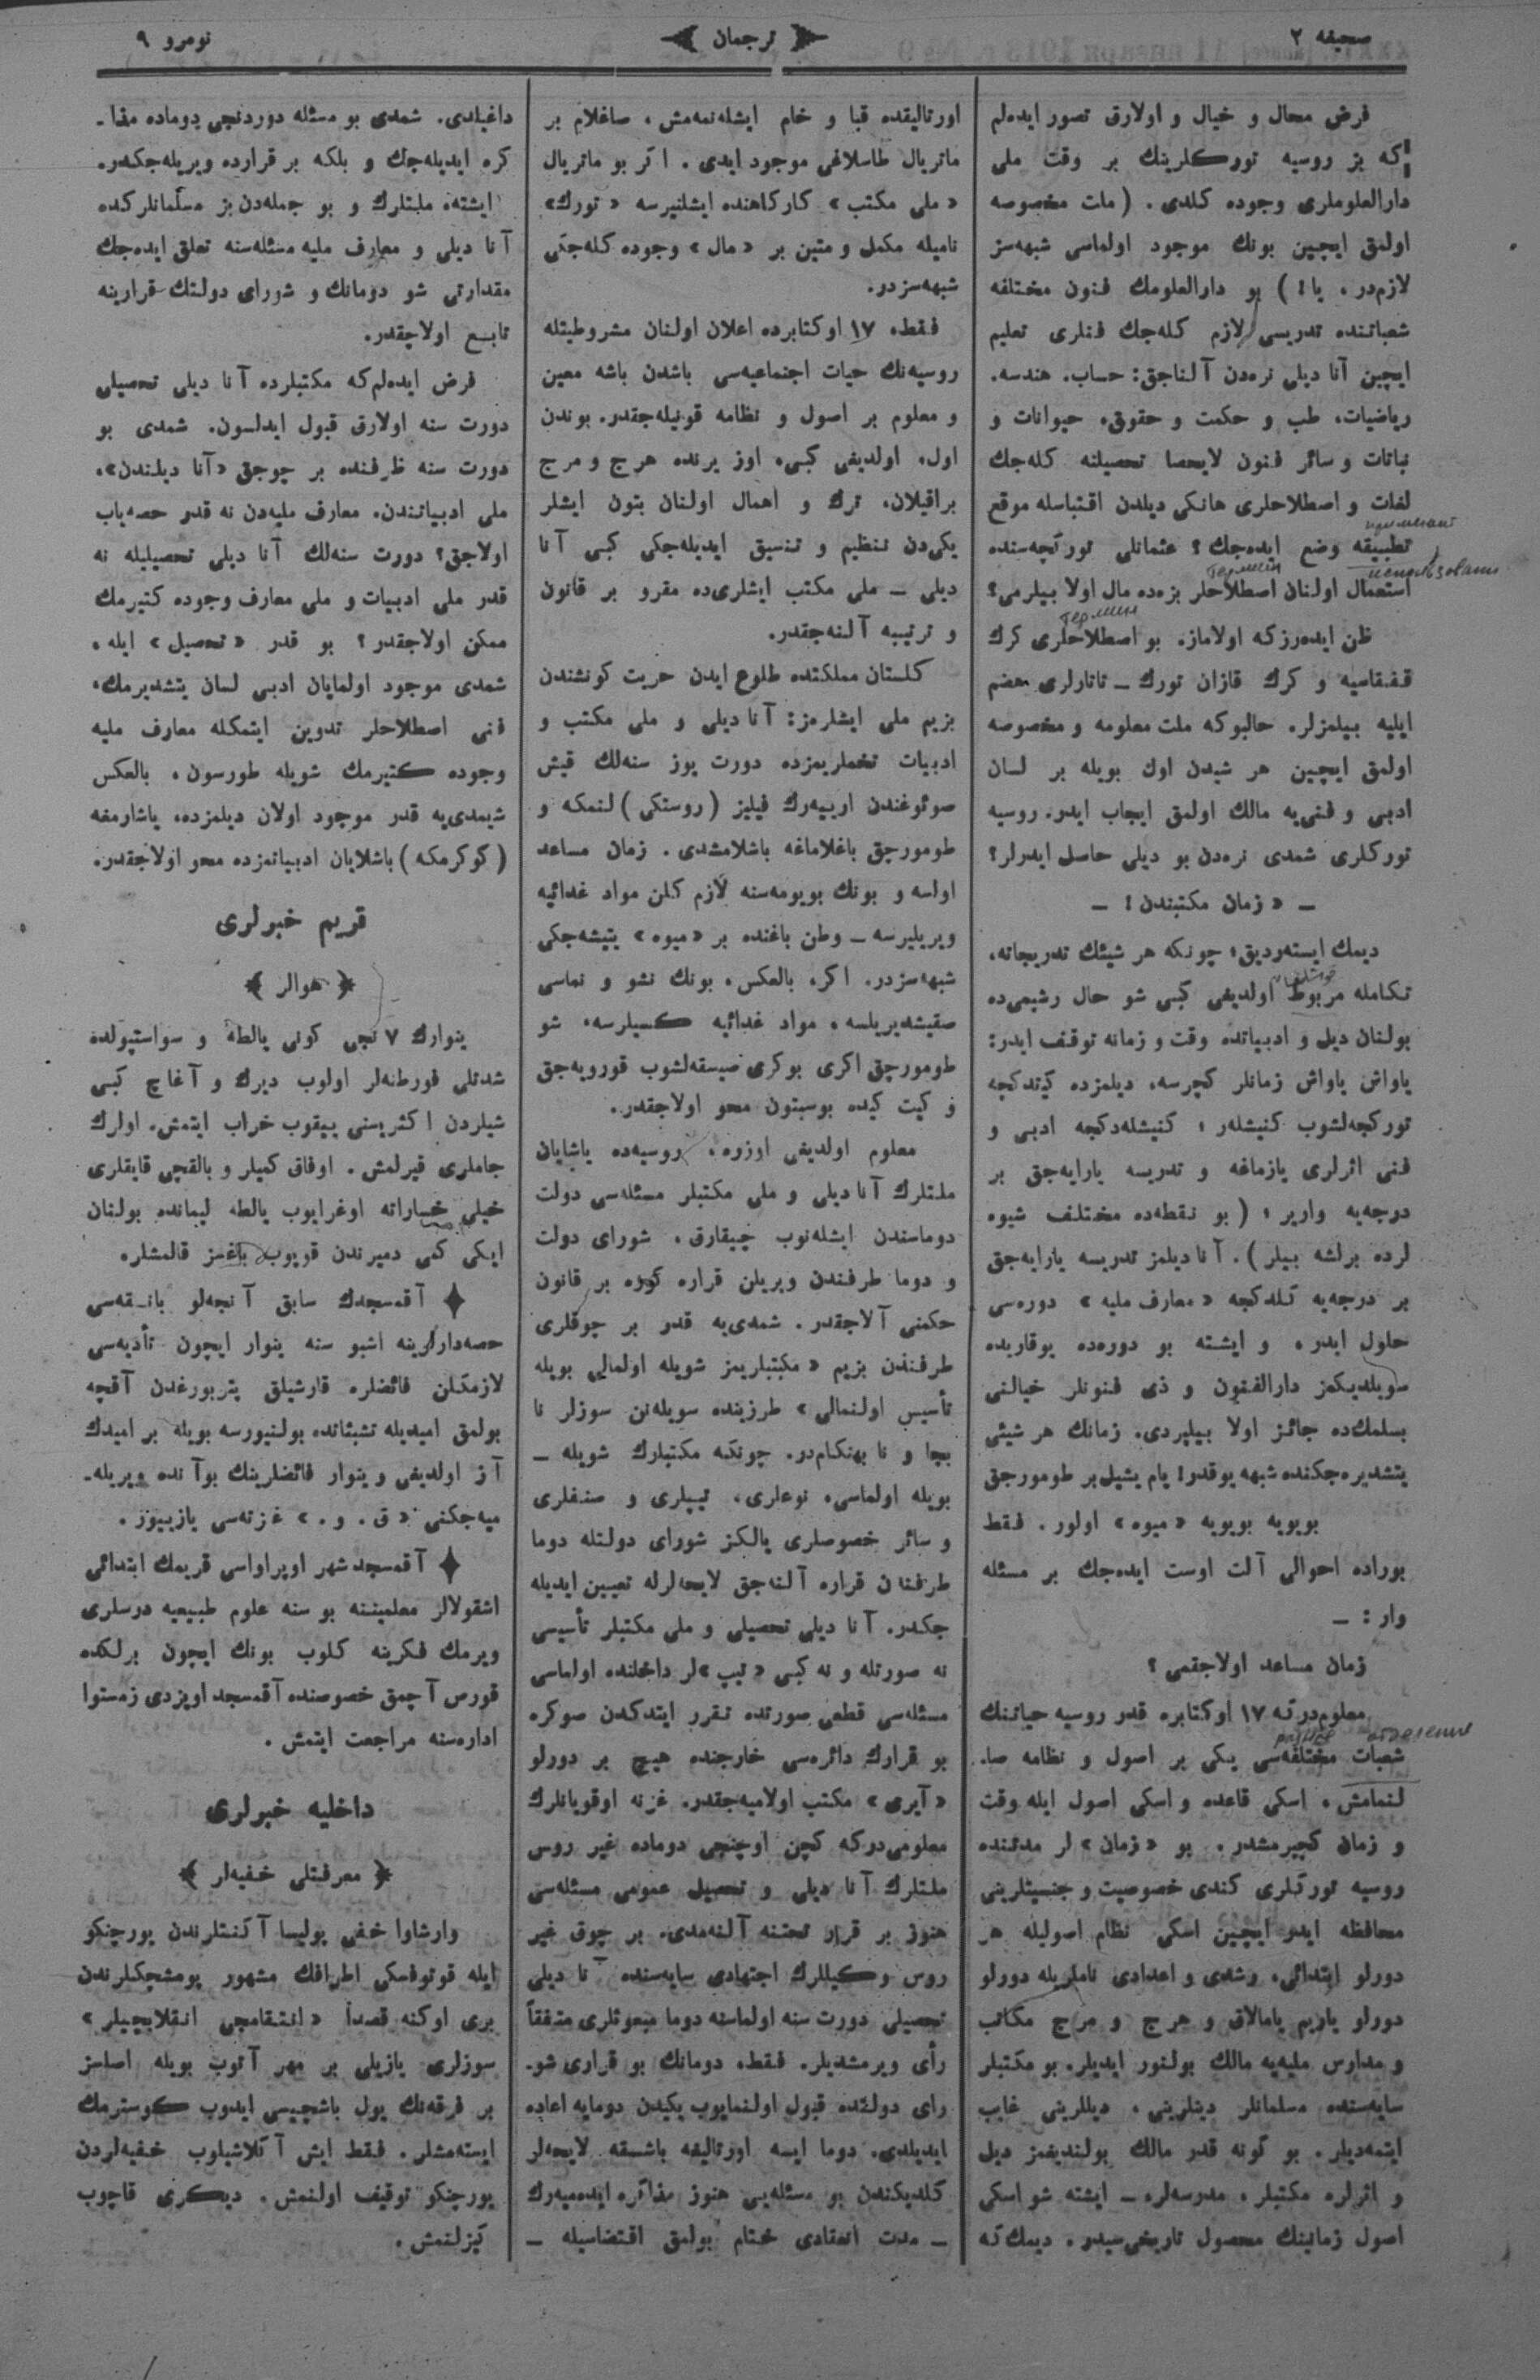 صحیفه ٢
ترجمان
نومرو ٩
فرض محال و خیال و اولارق تصور ایده‌لم
که بز روسیه تورکلرینك بر وقت ملی
دارالعلوملری وجوده کلدی. (ملت مخصوصه
اولمق ایچین بونك موجود اولماسی شبهه‌سز
لازمدر، یا!) بو دارالعلومك فنون مختلفه
شعباتنده تدریسی لازم کله‌جك فنلری تعلیم
ایچین آنا دیلی نره‌دن آلناجق: حساب. هندسه.
ریاضیات، طب و حکمت و حقوق، حیوانات و
نباتات و سائر فنون لایحصا تحصیلنه کله‌جك
لغات و اصطلاحلری هانکی دیلدن اقتباسله موقع
تطبیقه وضع ایده‌جك؟ عثمانلی تورکچه‌سنده
استعمال اولنان اصطلاحلر بزه‌ده مال اولا بیلرمی؟
ظن ایده‌رزکه اولاماز. بو اصطلاحلری کرك
قفقاسیه و کرك قازان تورك ـ تاتارلری هضم
ایلیه بیلمزلر. حالبوکه ملت معلومه و مخصوصه
اولمق ایچین هر شیدن اول بویله بر لسان
ادبی و فنی‌یه مالك اولمق ایجاب ایدر. روسیه
تورکلری شمدی نره‌دن بو دیلی حاصل ایدرلر؟
ـ «زمان مکتبندن! ـ
دیمك ایسته‌ردیق؛ چونکه هر شیئك تدریجاته،
تکامله مربوط اولدیغی کبی شو حال رشیمی‌ده
بولنان دیل و ادبیاتده وقت و زمانه توقف ایدر:
یاواش یاواش زمانلر کچرسه، دیلمزده کیتدکچه
تورکجه‌لشوب کنیشله‌ر؛ کنیشله‌دکجه ادبی و
فنی اثرلری یازماغه و تدریسه یارایه‌جق بر
درجه‌یه واریر؛ (بو نقطه‌ده مختلف شیوه
لرده برلشه بیلر). آنا دیلمز تدریسه یارایه‌جق
بر درجه‌یه کلدکچه «معارف ملیه» دوره‌سی
حلول ایدر، و ایشته بو دوره‌ده یوقاریده
سویلدیکمز دارالفنون و ذی فنونلر خیالنی
بسلمك‌ده جائز اولا بیلیردی. زمانك هر شیئی
یتشدیره‌جکنده شبهه یوقدر! یام یشیل بر طومورجق
بویویه بویویه «میوه» اولور. فقط
بوراده احوالی آلت اوست ایده‌جك بر مسئله
وار: ـ
زمان مساعد اولاجقمی؟
معلوم‌درکه ١٧ اوکتابره قدر روسیه حیاتنك
شعبات مختلفه‌سی یکی بر اصول و نظامه صا‌ـ
لنمامش، اسکی قاعده و اسکی اصول ایله وقت
و زمان کچیرمشدر. بو «زمان» لر مدتنده
روسیه تورکلری کندی خصوصیت و جنسیتلرینی
محافظه ایدر ایچین اسکی نظام اصولیله هر
دورلو ابتدائی، رشدی و اعدادی ناملریله دورلو
دورلو یاریم یامالاق و هرج و مرج مکاتب
و مدارس ملیه‌یه مالك بولنور ایدیلر. بو مکتبلر
سایه‌سنده مسلمانلر دینلرینی، دیللرینی غایب
ایتمه‌دیلر. بو کونه قدر مالك بولندیغمز دیل
و اثرلره مکتبلر، مدرسه‌لره ـ ایشته شو اسکی
اصول زمانینك محصول تاریخی‌سیدر. دیمك که
اورتالیقده قبا و خام ایشله‌نمه‌مش، صاغلام بر
ماتریال طاسلاغی موجود ایدی. اکر بو ماتریال
«ملی مکتب» کارکاهنده ایشلنیرسه «تورك»
نامیله مکمل و متین بر «مال» وجوده کله‌جکی
شبهه‌سزدر.
فقط، ١٧ اوکتابرده اعلان اولنان مشروطیتله
روسیه‌نك حیات اجتماعیه‌سی باشدن باشه معین
و معلوم بر اصول و نظامه قونیله‌جقدر. بوندن
اول، اولدیغی کبی، اوز یرنده هرج و مرج
براقیلان، ترك و اهمال اولنان بتون ایشلر
یکی‌دن تنظیم و تنسیق ایدیله‌جکی کبی آنا
دیلی ـ ملی مکتب ایشلری‌ده مقرو بر قانون
و ترتیبه آلنه‌جقدر.
کلستان مملکتده طلوع ایدن حریت کونشندن
بزیم ملی ایشلرمز: آنا دیلی و ملی مکتب و
ادبیات تخملریمزده دورت یوز سنه‌لك قیش
صوئوغندن اریبه‌رك فیلیز (روستکی) لنمکه و
طومورجق باغلاماغه باشلامشدی. زمان مساعد
اولسه و بونك بویومه‌سنه لازم کلن مواد غدائیه
ویریلیرسه ـ وطن باغنده بر «میوه» یتیشه‌جکی
شبهه‌سزدر. اکر، بالعکس، بونك نشو و نماسی
صقیشدیریلسه، مواد غدائیه کسیلرسه، شو
طومورجق اکری بوکری صیسقه‌لشوب قورویه‌جق
و کیت کیده بوسبتون محو اولاجقدر.
معلوم اولدیغی اوزره، روسیه‌ده یاشایان
ملتلرك آنا دیلی و ملی مکتبلر مسئله‌سی دولت
دوماسندن ایشله‌نوب چیقارق، شورای دولت
و دوما طرفندن ویریلن قراره کوره بر قانون
حکمنی آلاجقدر. شمدی‌یه قدر بر چوقلری
طرفندن بزیم «مکتبلریمز شویله اولمالی بویله
تأسیس اولنمالی» طرزینده سویله‌نن سوزلر نا
بجا و نا بهنکام‌در. چونکه مکتبلرك شویله ـ
بویله اولماسی، نوعلری، تیپلری و صنفلری
و سائر خصوصلری یالکز شورای دولتله دوما
طرفندن قراره آلنه‌جق لایحه‌لرله تعیین ایدیله
جکدر. آنا دیلی تحصیلی و ملی مکتبلر تأسیسی
نه صورتله و نه کبی «تیپ»لر داخلنده اولماسی
مسئله‌سی قطعی صورتده تقرر ایتدکدن صوکره
بو قرارك دائره‌سی خارجنده هیچ بر دورلو
«آیری» مکتب اولامیه‌جقدر. غزته اوقویانلرك
معلومی‌درکه کچن اوچنجی دوماده غیر روس
ملتلرك آنا دیلی و تحصیل عمومی مسئله‌سی
هنوز بر قرار تحتنه آلنه‌مدی. بر چوق غیر
روس وکیللرك اجتهادی سایه‌سنده آنا دیلی
تحصیلی دورت سنه اولماسنه دوما مبعوثلری متفقاً
رأی ویرمشدیلر. فقط، دومانك بو قراری شو‌ـ
رای دولتده قبول اولنمایوب یکیدن دومایه اعاده
ایدیلدی. دوما ایسه اورتالیغه باشقه لایحه‌لر
کلدیکندن بو مسئله‌یی هنوز مذاکره ایده‌میه‌رك
ـ مدت انعقادی ختام بولمق اقتضاسیله ـ
داغیلدی. شمدی بو مسئله دوردنجی دوماده مذا‌ـ
کره ایدیله‌جك و بلکه بر قرارده ویریله‌جکدر.
ایشته، ملتلرك و بو جمله‌دن بز مسلمانلرکده
آنا دیلی و معارف ملیه مسئله‌سنه تعلق ایده‌جك
مقداراتی شو دومانك و شورای دولتك قرارینه
تابع اولاجقدر.
فرض ایده‌لم که مکتبلرده آنا دیلی تحصیلی
دورت سنه اولارق قبول ایدلسون. شمدی بو
دورت سنه ظرفنده بر چوجق «آنا دیلندن»،
ملی ادبیاتندن، معارف ملیه‌دن نه قدر حصه‌یاب
اولاجق؟ دورت سنه‌لك آنا دیلی تحصیلیله نه
قدر ملی ادبیات و ملی معارف وجوده کتیرمك
ممکن اولاجقدر؟ بو قدر «تحصیل» ایله،
شمدی موجود اولمایان ادبی لسان یتشدیرمك،
فنی اصطلاحلر تدوین ایتمکله معارف ملیه
وجوده کتیرمك شویله طورسون، بالعکس
شیمدی‌یه قدر موجود اولان دیلمزده، یاشارمغه
(کوکرمکه) باشلایان ادبیاتمزده محو اولاجقدر.
قریم خبرلری
هوالر
ینوارك ٧ نجی کونی یالطه و سواستپولده
شدتلی فورطنه‌لر اولوب دیرك و آغاچ کبی
شیلردن اکثریسنی ییقوب خراب ایتمش. اولرك
جاملری قیرلمش. اوفاق کمیلر و بالقچی قایقلری
خیلی خساراته اوغرایوب یالطه لیماننده بولنان
ایکی کمی دمیرندن قوپوب باغسز قالمشلره
آقمسجدك سابق آنجه‌لو بانقه‌سی
حصه‌دارلرینه اشبو سنه ینوار ایچون تأدیه‌سی
لازمکلن فائضلره قارشیلق پتربورغدن آقچه
بولمق امیدیله تشبثاتده بولنیورسه بویله بر امیدك
آز اولدیغی و ینوار فائضلرینك بوآنده ویریله‌ـ
میه‌جکنی «ق. و.» غزته‌سی یازییوز.
آقمسجد شهر اوپراواسی قریمك ابتدائی
اشقولالر معلمیننه بو سنه علوم طبیعیه درسلری
ویرمك فکرینه کلوب بونك ایچون برلکده
قورص آچمق خصوصنده آقمسجد اویزدی زمستوا
اداره‌سنه مراجعت ایتمش.
داخلیه خبرلری
معرفتلی خفیه‌لر
وارشاوا خفی پولیسا آکنتلرندن یورچنکو
ایله قوتوفسکی اطرافك مشهور پومشچکلرندن
بری اوکنه قصداً «انتقامجی انقلابچیلر»
سوزلری یازیلی بر مهر آتوب بویله اصلسز
بر فرقه‌نك یول باشچیسی ایدوب کوسترمك
ایسته‌مشلر. فقط ایش آکلاشیلوب خفیه‌لردن
یورچنکو توقیف اولنمش. دیکری قاچوب
کیزلنمش.